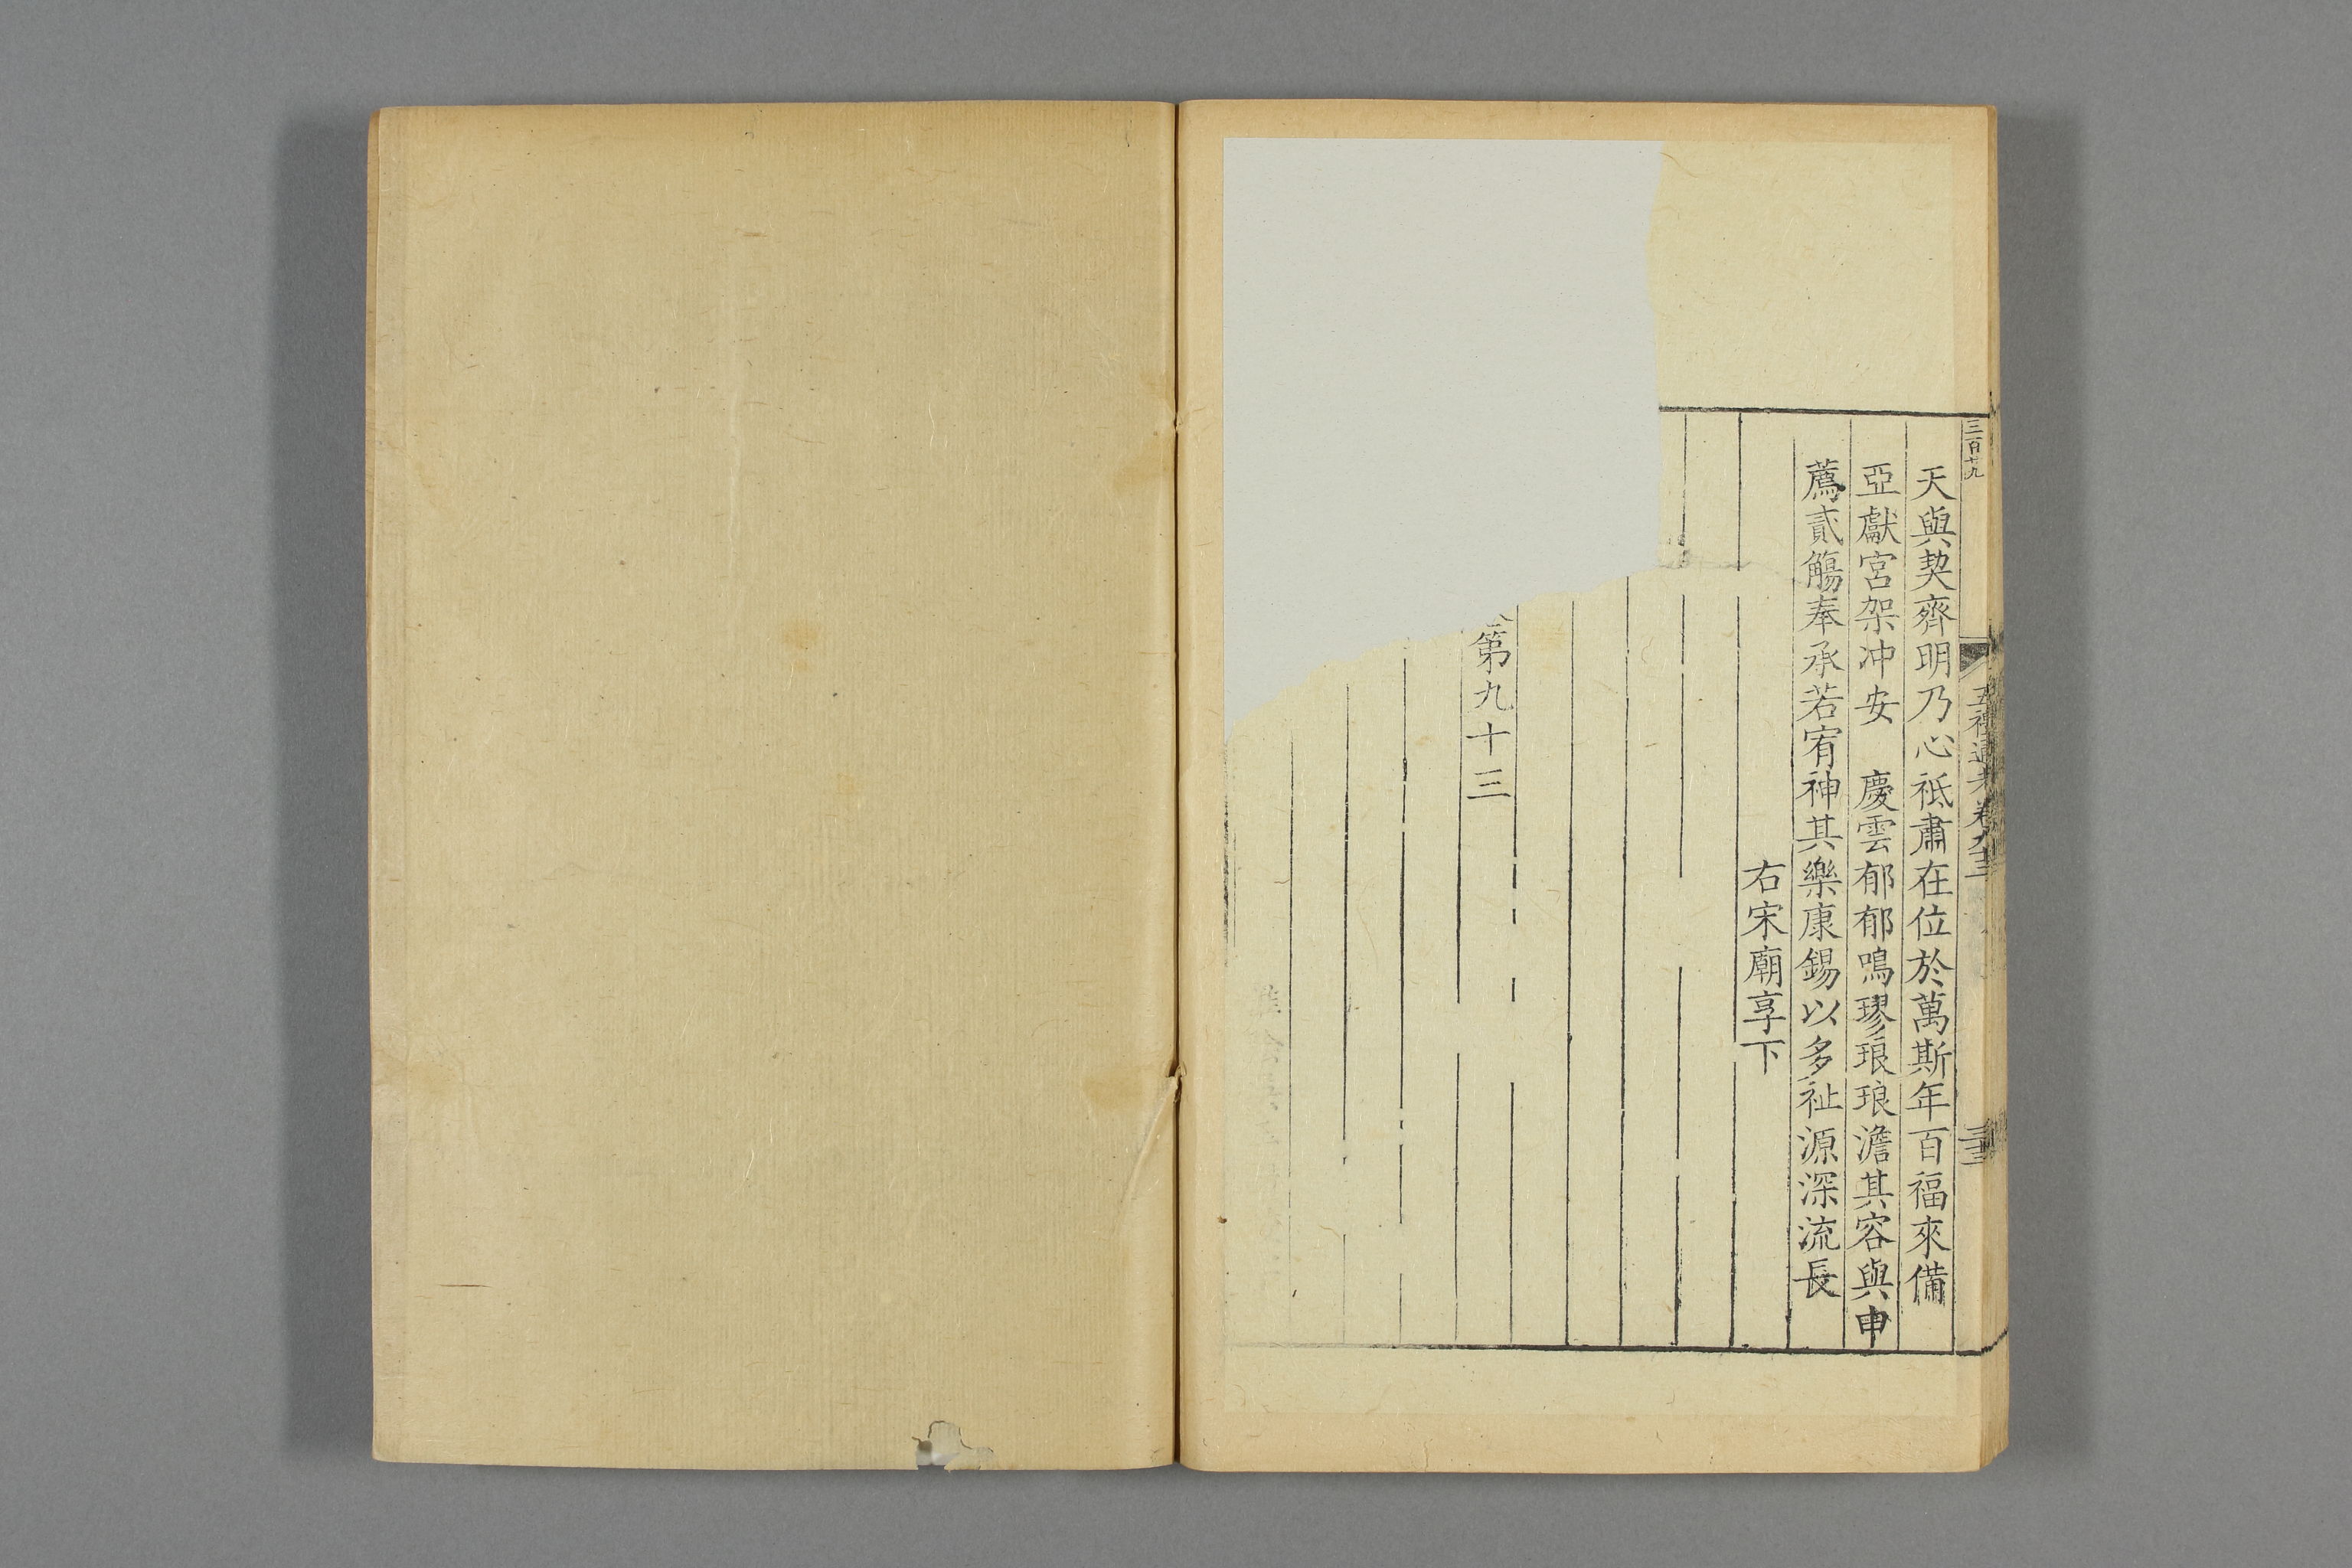 三百廿九
五禮通考卷九十三
天與契齊明乃心祗肅在位於萬斯年百福來備
亞獻宮架冲安　慶雲郁郁鳴璆琅琅澹其容與申
薦貳觴奉承若宥神其樂康錫以多祉源深流長
右宋廟享下
第九十三